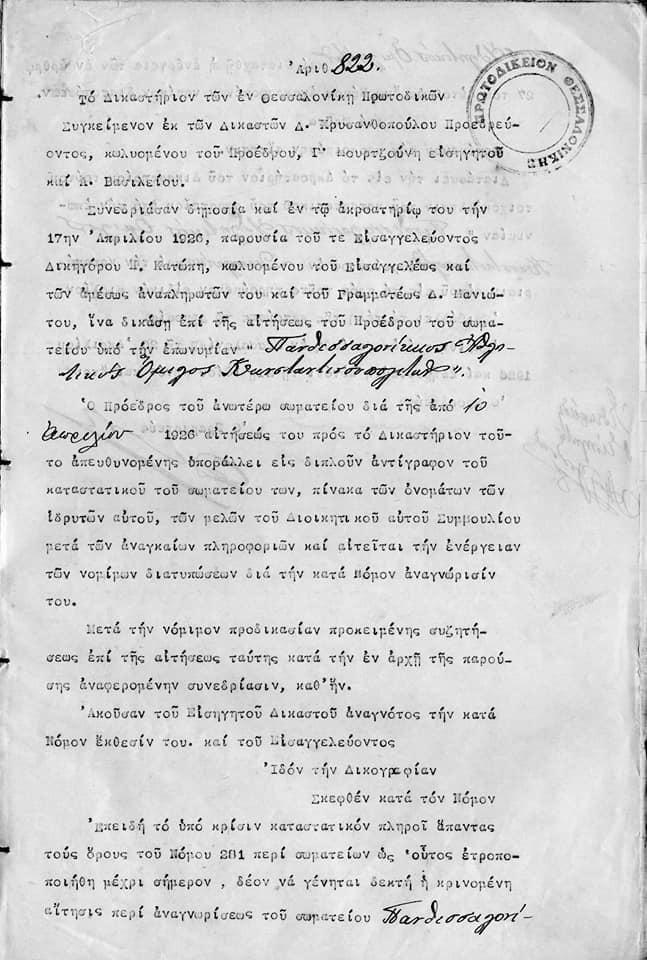 Ἀριθ 822.
ΠΡΩΤΟΔΙΚΕΙΟΝ ΘΕΣΣΑΛΟΝΙΚΗΣ
Τό Δικαστήριον τῶν ἐν Θεσσαλονίκῃ Πρωτοδικῶν
Συγκείμενον ἐκ τῶν Δικαστῶν Δ. Χρυσανθοπούλου Προεδρεύ-
οντος, κωλυομένου τοῦ Προέδρου, Γ. Μουρτζούνη εἰσηγητοῦ
καί Α. Βασιλείου.
Συνεδριάσαν δημοσίᾳ καί ἐν τῷ ἀκροατηρίῳ του τήν
17ην Ἀπριλίου 1926, παρουσίᾳ τοῦ τε Εἰσαγγελεύοντος
Δικηγόρου Κατώπη, κωλυομένου τοῦ Εἰσαγγελέως καί
τῶν ἀμέσως ἀναπληρωτῶν του καί τοῦ Γραμματέως Δ. Μανιώ-
του, ἵνα δικάσῃ ἐπί τῆς αἰτήσεως τοῦ Προέδρου τοῦ σωμα-
τείου ὑπό τήν ἐπωνυμίαν " Πανθεσσαλονίκιος Ἀθλη-
τικός Ὅμιλος Κωνσταντινουπολιτῶν".
Ὁ Πρόεδρος τοῦ ἀνωτέρω σωματείου διά τῆς ἀπό 10
Ἀπριλίου 1926 αἰτήσεώς του πρός τό Δικαστήριον τοῦ-
το ἀπευθυνομένης ὑποβάλλει εἰς διπλοῦν ἀντίγραφον τοῦ
καταστατικοῦ τοῦ σωματείου των, πίνακα τῶν ὀνομάτων τῶν
ἱδρυτῶν αὐτοῦ, τῶν μελῶν τοῦ Διοικητικοῦ αὐτοῦ Συμβουλίου
μετά τῶν ἀναγκαίων πληροφοριῶν καί αἰτεῖται τήν ἐνέργειαν
τῶν νομίμων διατυπώσεων διά τήν κατά Νόμον ἀναγνώρισίν
του.
Μετά τήν νόμιμον προδικασίαν προκειμένης συζητή-
σεως ἐπί τῆς αἰτήσεως ταύτης κατά τήν ἐν ἀρχῇ τῆς παρού-
σης ἀναφερομένην συνεδρίασιν, καθ'ἥν.
Ἀκοῦσαν τοῦ Εἰσηγητοῦ Δικαστοῦ ἀναγνότος τήν κατά
Νόμον ἔκθεσίν του. καί τοῦ Εἰσαγγελεύοντος
Ἰδόν τήν Δικογραφίαν
Σκεφθέν κατά τόν Νόμον
Ἐπειδή τό ὑπό κρίσιν καταστατικόν πληροῖ ἅπαντας
τούς ὅρους τοῦ Νόμου 281 περί σωματείων ὡς οὗτος ἐτροπο-
ποιήθη μέχρι σήμερον , δέον νά γένηται δεκτή ἡ κρινομένη
αἴτησις περί ἀναγνωρίσεως τοῦ σωματείου Πανθεσσαλονί-